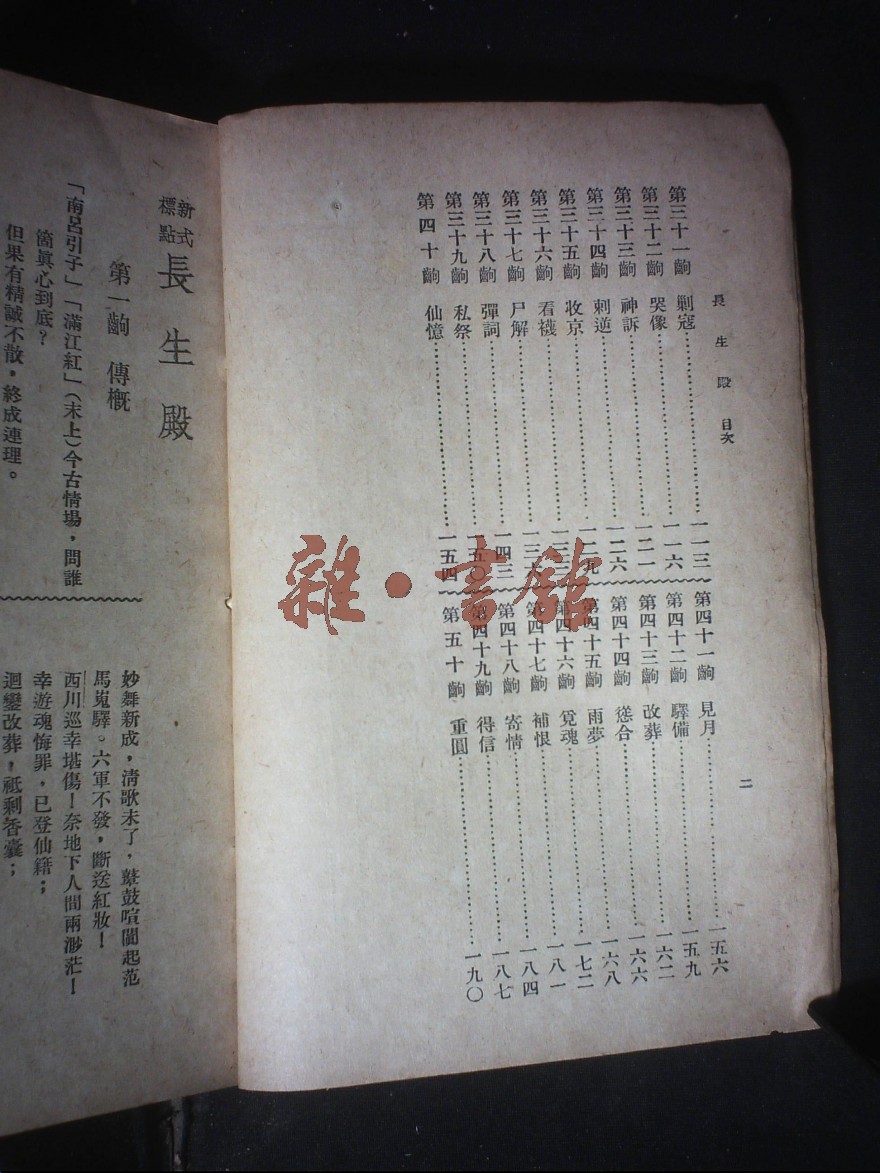 長生殿 目次
二
第三十一齣 剿寇……一一三
第三十二齣 哭像……一一六
第三十三齣 神訴……一二一
第三十四齣 刺逆……一二六
第三十五齣 收京……一二九
第三十六齣 看襪……一三三
第三十七齣 尸解……一三六
第三十八齣 彈詞……一四三
第三十九齣 私祭……一五〇
第四十齣 仙憶……一五四
第四十一齣 見月……一五六
第四十二齣 驛備……一五九
第四十三齣 改葬……一六二
第四十四齣 慫合……一六六
第四十五齣 雨夢……一六八
第四十六齣 覓魂……一七二
第四十七齣 補恨……一八一
第四十八齣 寄情……一八四
第四十九齣 得信……一八七
第五十齣 重圓……一九〇
雜·書館
新式標點 長生殿
第一齣 傳概
「南呂引子」「滿江紅」(末上)今古情場，問誰
箇眞心到底？
但果有精誠不散，終成連理。
妙舞新成，淸歌未了，鼙鼓喧闐起范
馬嵬驛。六軍不發，斷送紅妝！
西川巡幸堪傷！奈地下人間兩渺茫！
幸遊魂悔罪，已登仙籍；
迴鑾改葬，祗剩香囊；